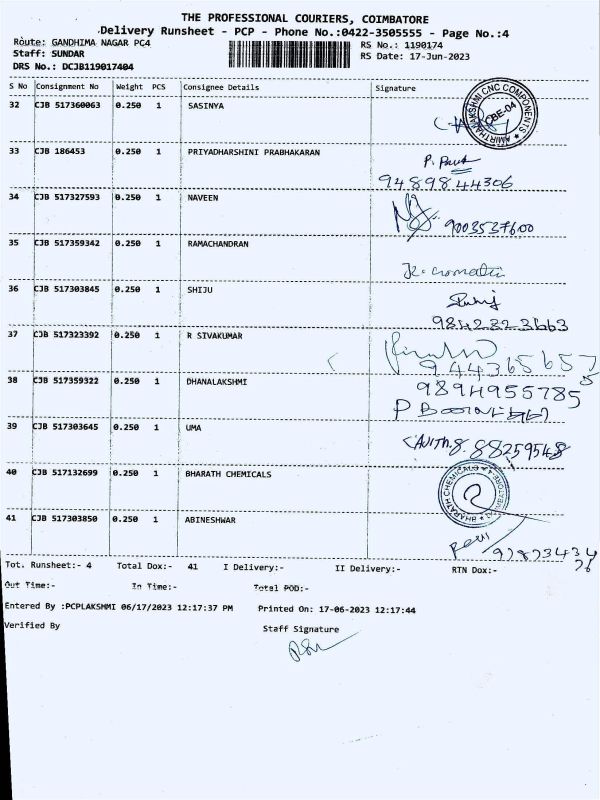 THE PROFESSIONAL COURIERS, COIMBATORE
Delivery Runsheet - PCP - Phone No.:0422-3505555 - Page No.:4
Route: GANDHIMA NAGAR PC4 RS No.: 1190174
Staff: SUNDAR RS Date: 17-Jun-2023
DRS No.: DCJB119017404
S No Consignment No Weight PCS Consignee Details Signature
32 CJB 517360063 0.250 1 SASINYA
AMIRTHALAKSHMI CNC COMPONENTS CBE-04
33 CJB 186453 0.250 1 PRIYADHARSHINI PRABHAKARAN
9489844306
34 CJB 517327593 0.250 1 NAVEEN
9003537600
35 CJB 517359342 0.250 1 RAMACHANDRAN
36 CJB 517303845 0.250 1 SHIJU
9842823663
37 CJB 517323392 0.250 1 R SIVAKUMAR
38 CJB 517359322 0.250 1 DHANALAKSHMI
9894955785
39 CJB 517303645 0.250 1 UMA
40 CJB 517132699 0.250 1 BHARATH CHEMICALS
BHARATH CHEMICALS
41 CJB 517303850 0.250 1 ABINESHWAR
Tot. Runsheet:- 4 Total Dox:- 41 I Delivery:- II Delivery:- RTN Dox:-
Out Time:- In Time:- Total POD:-
Entered By :PCPLAKSHMI 06/17/2023 12:17:37 PM Printed On: 17-06-2023 12:17:44
Verified By Staff Signature